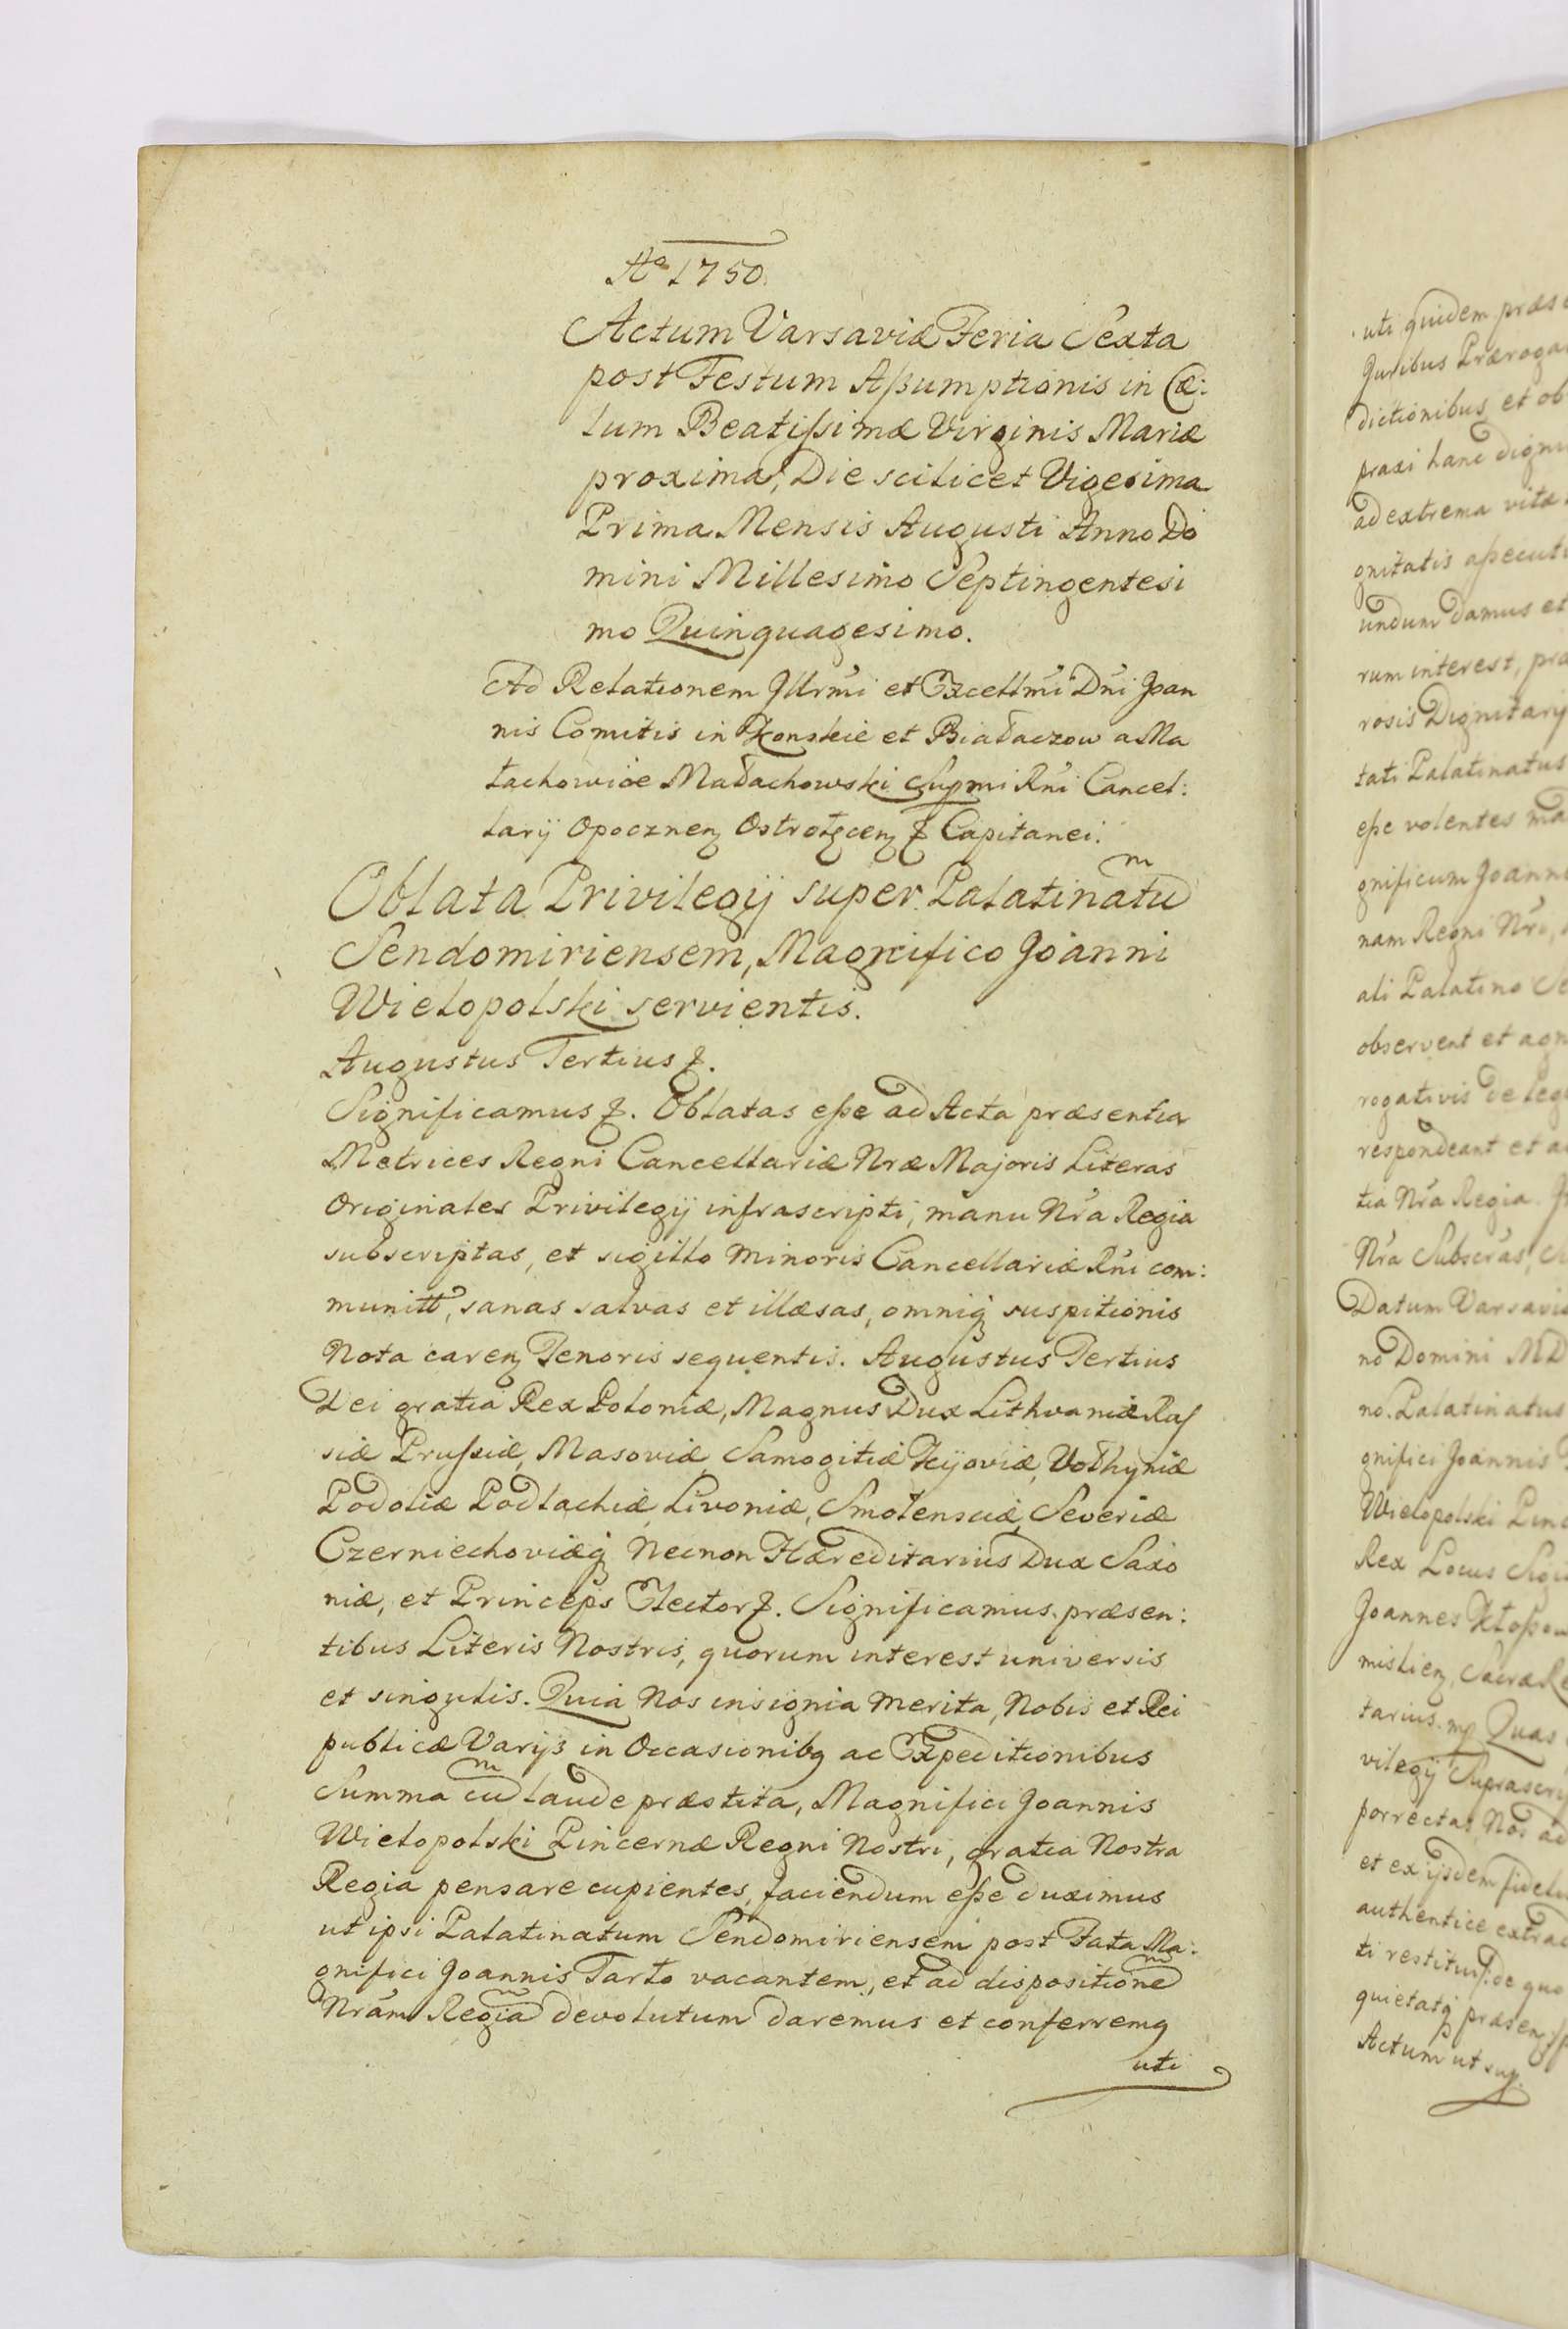 Aº 1750.
Actum Varsaviæ Feria Sexta
post Festum Aßumptionis in Cæ:
lum Beatißimæ Virginis Mariæ
proxima, Die scilicet Vigesima
Prima Mensis Augusti Anno Do
mini Millesimo Septingentesi
mo Quinquagesimo.
Ad Relationem Jllrmi et Excellmi Dni Joan
nis Comitis in Konskie et Białaczow a Ma
łachowice Małachowski Supmi Rni Cancel:
larij Opocznen Ostrołęcen & Capitanei.
Oblata Privilegij super Palatinatum
Sendomiriensem, Magnifico Joanni
Wielopolski servientis.
Augustus Tertius &.
Significamus &. Oblatas eße ad Acta præsentia
Metrices Regni Cancellariæ Nræ Majoris Literas
Originales Privilegij infrascripti, manu Nra Regia
subscriptas, et sigillo Minoris Cancellariæ Rni com:
munitt, sanas salvas et illæsas, omniq suspitionis
Nota caren Tenoris sequentis. Augustus Tertius
Dei gratia Rex Poloniæ, Magnus Dux Lithvaniæ Ras
siæ Prußiæ, Masoviæ, Samogitiæ Kijoviæ, Volhyniæ
Podoliæ Podlachiæ, Livoniæ, Smolensciæ, Severiæ
Czerniechoviæq Necnon Hæreditarius Dux Saxo
niæ, et Princeps Elector &. Significamus præsen:
tibus Literis Nostris, quorum interest universis
et singulis. Quia Nos insignia Merita, Nobis et Rei
publicæ Varijs in Occasionibg ac Expeditionibus
Summa cum laude præstita, Magnifici Joannis
Wielopolski Pincernæ Regni Nostri, gratia Nostra
Regia pensare cupientes, faciendum eße duximus
ut ipsi Palatinatum Sendomiriensem post Fata Ma:
gnifici Joannis Tarło vacantem, et ad dispositionem
Nram Regiam devolutum daremus et conferremg
uti
uti quidem
Juribus
dictionibus et ob
praxi hanc
ad extrema vitæ
gnitatis
undum damus et
rum interest,
rosis
tati Palatinatus
eße volentes
gnificum
nam Regni Nri,
ali Palatino
observent et
rogativis de
respondeant et
tia Nra Regia.
Nra Subscras,
Datum
no Domini
no. Palatinatus
gnifici Joannis
Wielopolski
Rex Locus
Joannes
mislien,
tarius. mp Quas
vilegij
porrectas, Nos ad
et ex ijsdem
authentice
ti de quo
quietatq præsen
Actum ut sup.